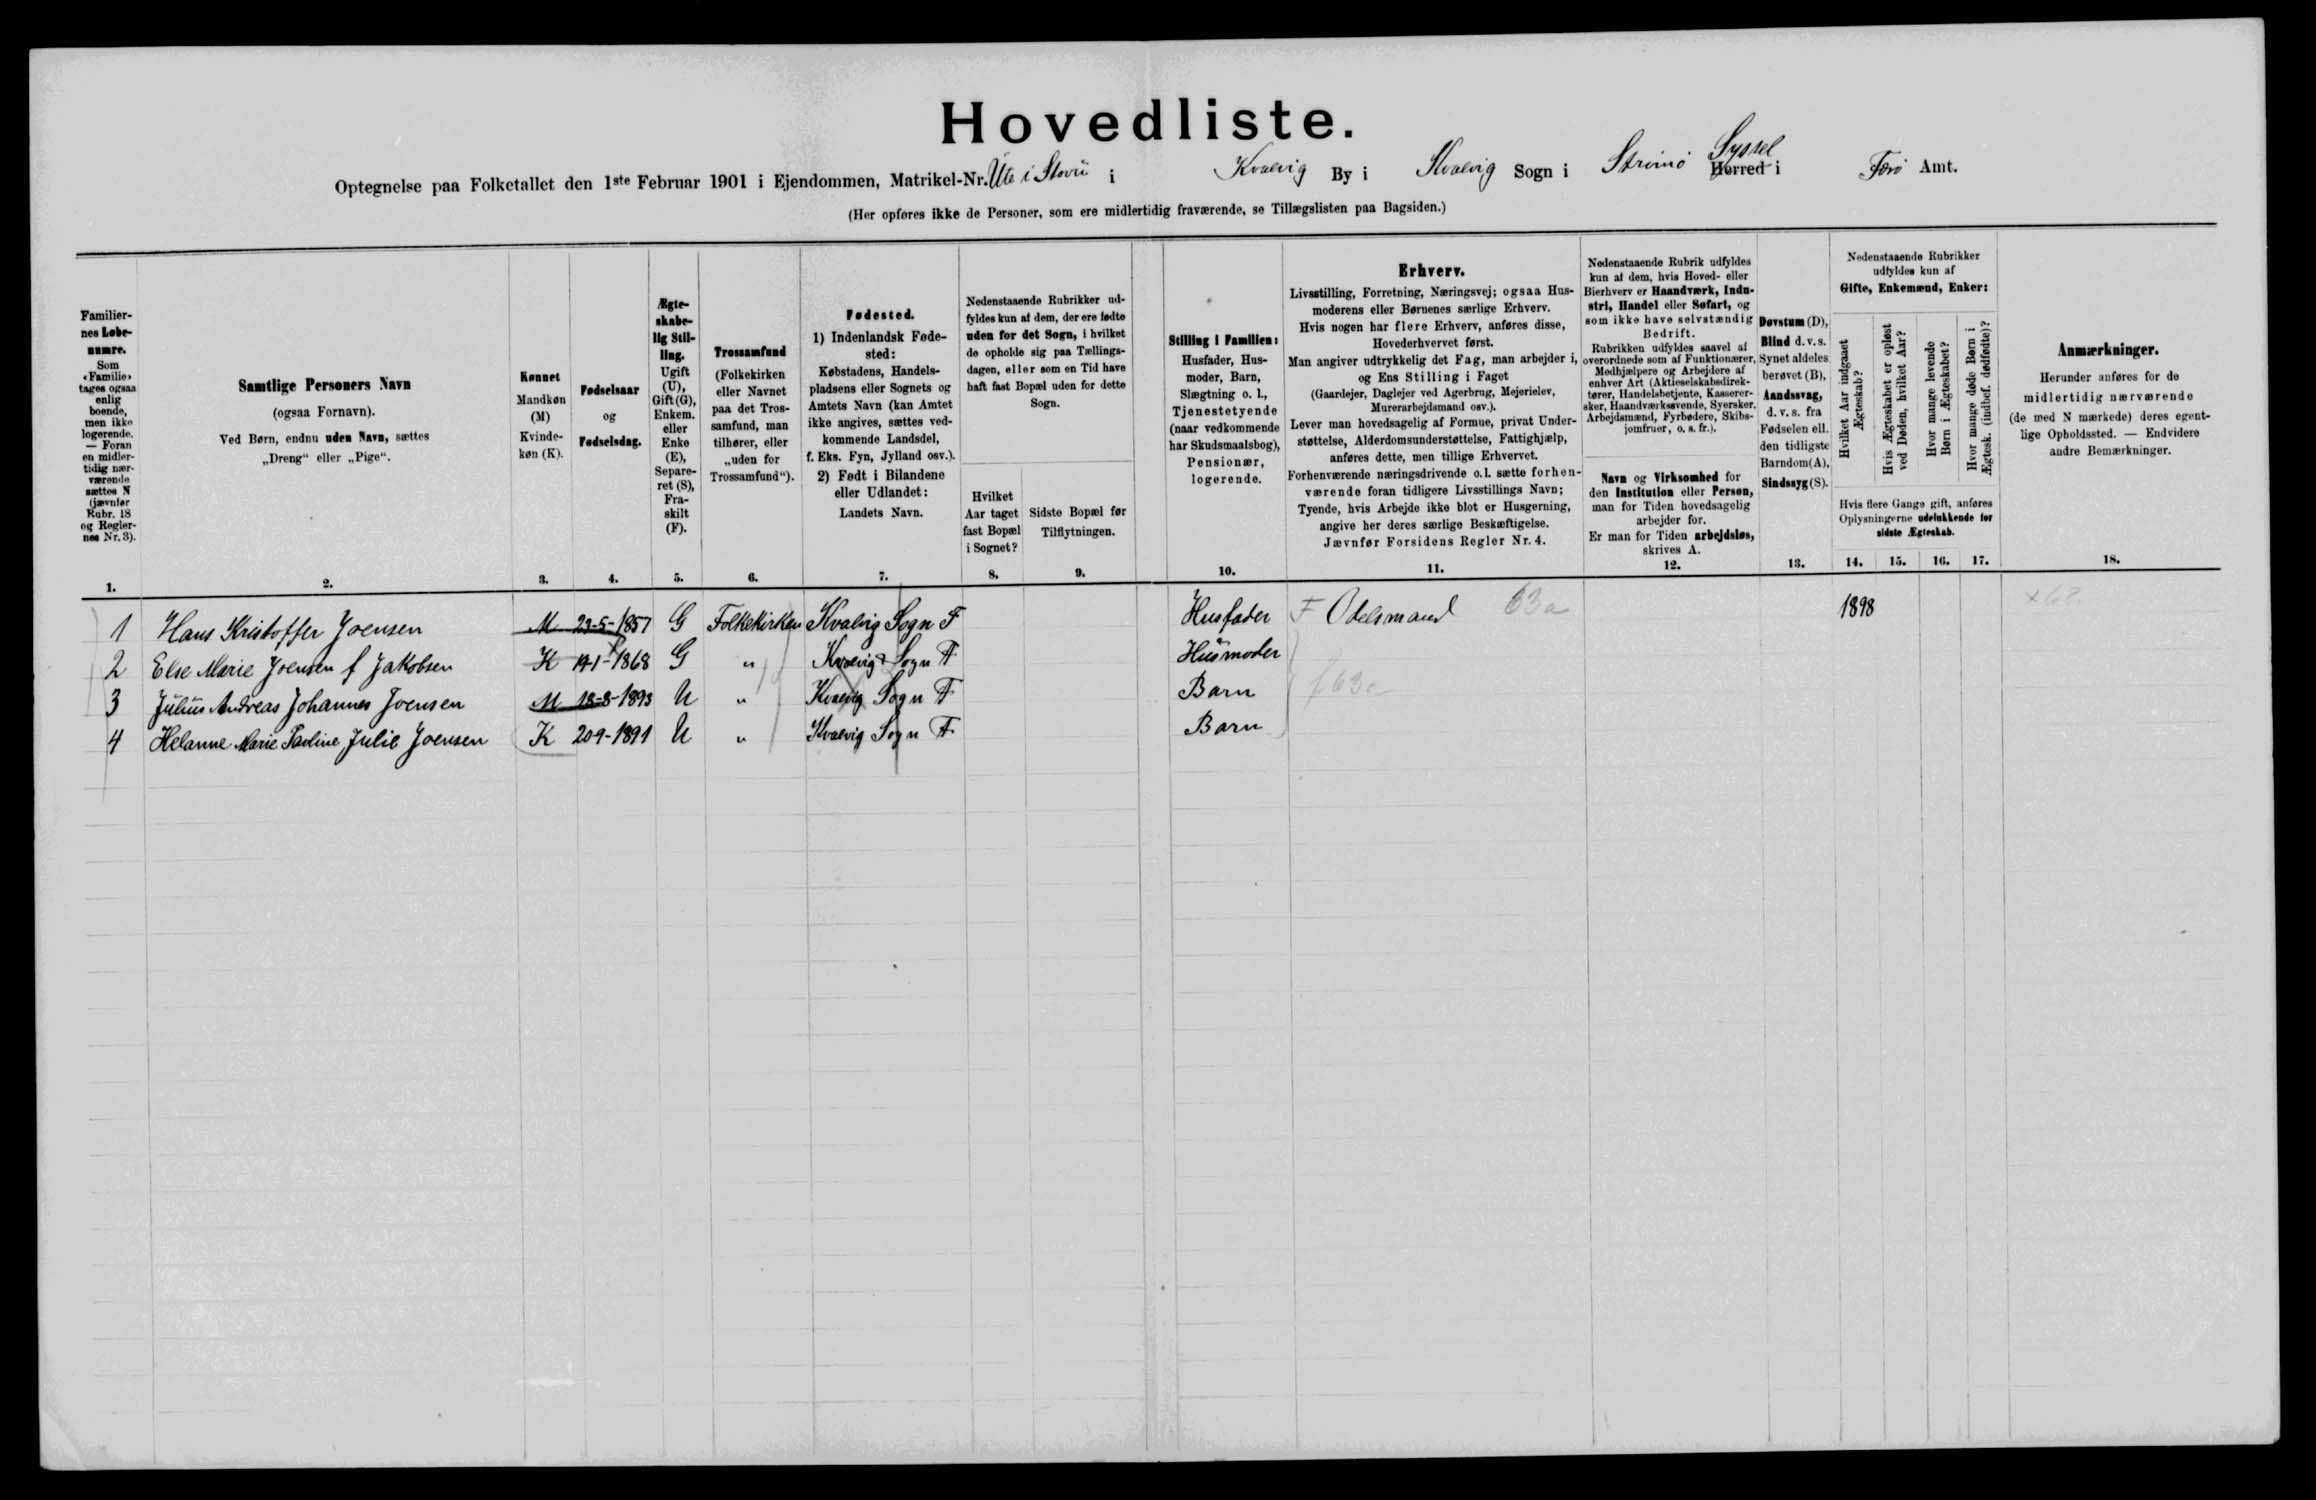 Hovedliste.
Optegnelse paa Folketallet den 1ste Februar 1901 i Ejendommen, Matrikel-Nr. Úte i Stovú i Kvalvig By i Kvalvig Sogn i Strömö Syssel Herred i Færö Amt.
(Her opføres ikke de Personer, som ere midlertidig fraværende, se Tillægslisten paa Bagsiden.)
Familiernes Løbenumre.
Som «Familie» tages ogsaa enlig boende, men ikke logerende. — Foran en midlertidig nærværende sættes N (jævnfør Rubr. 18 og Reglernes Nr. 3).
1.
Samtlige Personers Navn
(ogsaa Fornavn).
Ved Børn, endnu uden Navn, sættes
„Dreng“ eller „Pige“.
2.
Kønnet
Mandkøn
(M)
Kvinde-
køn (K).
3.
Fødselsaar
og
Fødselsdag.
4.
Ægte-
skabe-
lig Stil-
ling.
Ugift
(U),
Gift (G),
Enkem.
eller
Enke
(E),
Separe-
ret (S),
Fra-
skilt
(F).
5.
Trossamfund
(Folkekirken
eller Navnet
paa det Tros-
samfund, man
tilhører, eller
„uden for
Trossamfund“).
6.
Fødested.
1) Indenlandsk Føde-
sted:
Købstadens, Handels-
pladsens eller Sognets og
Amtets Navn (kan Amtet
ikke angives, sættes ved-
kommende Landsdel,
f. Eks. Fyn, Jylland osv.).
2) Født i Bilandene
eller Udlandet:
Landets Navn.
7.
Nedenstaaende Rubrikker ud-
fyldes kun af dem, der ere fødte
uden for det Sogn, i hvilket
de opholde sig paa Tællings-
dagen, eller som en Tid have
haft fast Bopæl uden for dette
Sogn.
Hvilket
Aar taget
fast Bopæl
i Sognet?
8.
Sidste Bopæl før
Tilflytningen.
9.
Stilling i Familien:
Husfader, Hus-
moder, Barn,
Slægtning o. l.,
Tjenestetyende
(naar vedkommende
har Skudsmaalsbog),
Pensionær,
logerende.
10.
Erhverv.
Livsstilling, Forretning, Næringsvej; ogsaa Hus-
moderens eller Børnenes særlige Erhverv.
Hvis nogen har flere Erhverv, anføres disse,
Hovederhvervet først.
Man angiver udtrykkelig det Fag, man arbejder i,
og Ens Stilling i Faget
(Gaardejer, Daglejer ved Agerbrug, Mejerielev,
Murerarbejdsmand osv.).
Lever man hovedsagelig af Formue, privat Under-
støttelse, Alderdomsunderstøttelse, Fattighjælp,
anføres dette, men tillige Erhvervet.
Forhenværende næringsdrivende o. l. sætte forhen-
værende foran tidligere Livsstillings Navn;
Tyende, hvis Arbejde ikke blot er Husgerning,
angive her deres særlige Beskæftigelse.
Jævnfør Forsidens Regler Nr. 4.
11.
Nedenstaaende Rubrik udfyldes
kun af dem, hvis Hoved- eller
Bierhverv er Haandværk, Indu-
stri, Handel eller Søfart, og
som ikke have selvstændig
Bedrift.
Rubrikken udfyldes saavel af
overordnede som af Funktionærer,
Medhjælpere og Arbejdere af
enhver Art (Aktieselskabsdirek-
tører, Handelsbetjente, Kasserer-
sker, Haandværkssvende, Syersker,
Arbejdsmænd, Fyrbødere, Skibs-
jomfruer, o. s. fr.).
Navn og Virksomhed for
den Institution eller Person,
man for Tiden hovedsagelig
arbejder for.
Er man for Tiden arbejdsløs,
skrives A.
12.
Døvstum (D),
Blind d. v. s.
Synet aldeles
berøvet (B),
Aandssvag,
d. v. s. fra
Fødselen ell.
den tidligste
Barndom (A),
Sindssyg (S).
13.
Nedenstaaende Rubrikker
udfyldes kun af
Gifte, Enkemænd, Enker:
Hvilket Aar indgaaet
Ægteskab?
Hvis Ægteskabet er opløst
ved Døden, hvilket Aar?
Hvor mange levende
Børn i Ægteskabet?
Hvor mange døde Børn i
Ægtesk. (indbef. dødfødte)?
Hvis flere Gange gift, anføres
Oplysningerne udelukkende for
sidste Ægteskab.
14. 15. 16. 17.
Anmærkninger.
Herunder anføres for de
midlertidig nærværende
(de med N mærkede) deres egent-
lige Opholdssted. — Endvidere
andre Bemærkninger.
18.
1 Hans Kristoffer Joensen M 23-5-1857 G Folkekirken Kvalvig Sogn F Husfader F Odelsmand 63a 1898 x68
2 Else Marie Joensen f Jakobsen K 19-1-1868 G „ Kvalvig Sogn F Húsmoder
3 Július Andreas Johannes Joensen M 18-8-1893 U „ Kvalvig Sogn F Barn f63a
4 Helanne Marie Paoline Julie Joensen K 20-9-1891 U „ Kvalvig Sogn F Barn